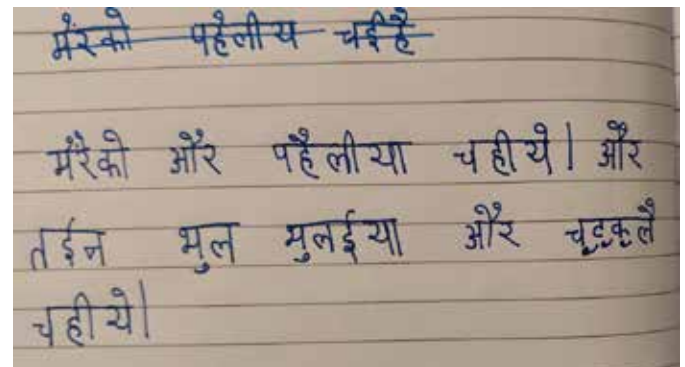 मेंरको पहेलीय चईहै
मेंरैको और पहैलीया चहीये। और
तईन भुल भुलईया और चूटकूलै
चहीये।